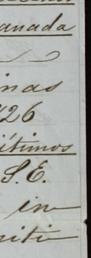 anada
inas
426
ltimos
S.E.
in
niti